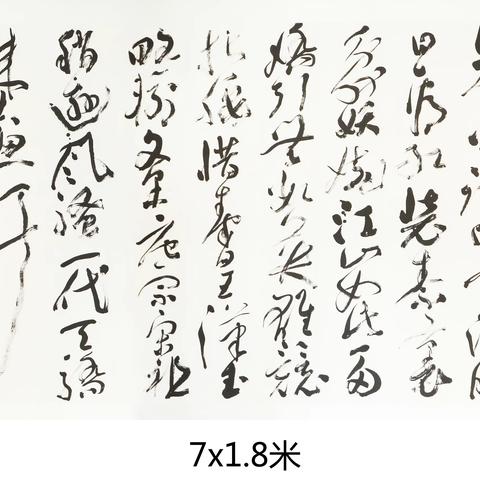 日看红装素裹
分外妖娆江山如此多
嬌引無数英雄競
折腰惜秦皇漢武
略输文采唐宗宋祖
稍逊風骚一代天骄
7x1.8米